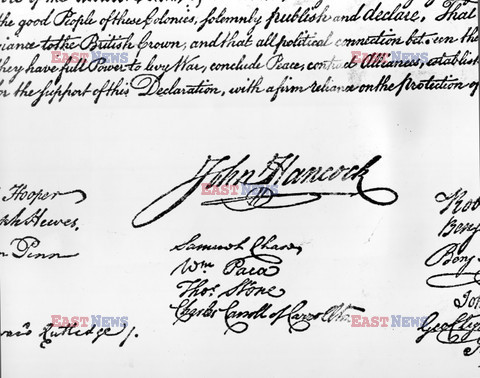 the good People of these Colonies, solemnly publish and declare, That
iance to the British Crown, and that all political connection between the
they have full Power to levy War, conclude Peace, contract Alliances, establish
r the support of this Declaration, with a firm reliance on the Protection of
John Hancock
Hooper
ph Hewes,
Penn
Samuel Chase
Wm. Paca
Thos. Stone
Charles Carroll of Carrollton
Rutledge
Benj
Geo Cly
EASTNEWS
EASTNEWS
EASTNEWS
EASTNEWS
EASTNEWS
EASTNEWS